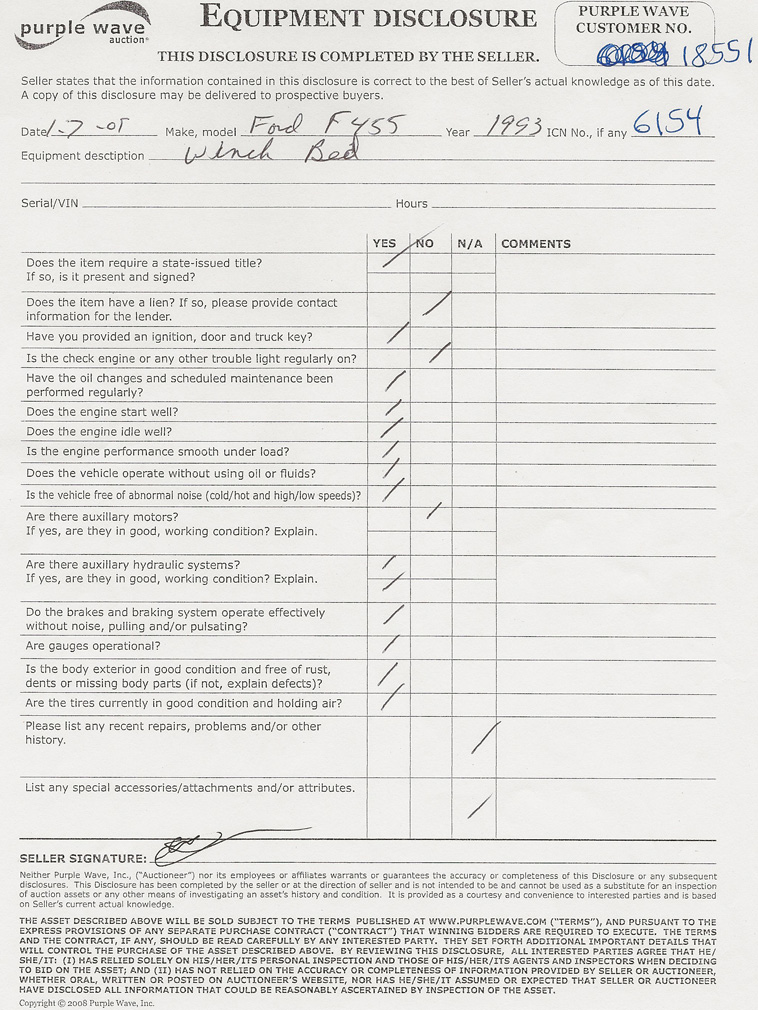 purple wave
auction®
EQUIPMENT DISCLOSURE
THIS DISCLOSURE IS COMPLETED BY THE SELLER.
PURPLE WAVE
CUSTOMER NO.
18551
Seller states that the information contained in this disclosure is correct to the best of Seller's actual knowledge as of this date.
A copy of this disclosure may be delivered to prospective buyers.
Date 1-7-09 Make, model Ford F455 Year 1993 ICN No., if any 6154
Equipment desctiption Winch Bed
Serial/VIN Hours
YES NO N/A COMMENTS
Does the item require a state-issued title?
If so, is it present and signed?
Does the item have a lien? If so, please provide contact
information for the lender.
Have you provided an ignition, door and truck key?
Is the check engine or any other trouble light regularly on?
Have the oil changes and scheduled maintenance been
performed regularly?
Does the engine start well?
Does the engine idle well?
Is the engine performance smooth under load?
Does the vehicle operate without using oil or fluids?
Is the vehicle free of abnormal noise (cold/hot and high/low speeds)?
Are there auxillary motors?
If yes, are they in good, working condition? Explain.
Are there auxillary hydraulic systems?
If yes, are they in good, working condition? Explain.
Do the brakes and braking system operate effectively
without noise, pulling and/or pulsating?
Are gauges operational?
Is the body exterior in good condition and free of rust,
dents or missing body parts (if not, explain defects)?
Are the tires currently in good condition and holding air?
Please list any recent repairs, problems and/or other
history.
List any special accessories/attachments and/or attributes.
SELLER SIGNATURE:
Neither Purple Wave, Inc., ("Auctioneer") nor its employees or affiliates warrants or guarantees the accuracy or completeness of this Disclosure or any subsequent
disclosures. This Disclosure has been completed by the seller or at the direction of seller and is not intended to be and cannot be used as a substitute for an inspection
of auction assets or any other means of investigating an asset's history and condition. It is provided as a courtesy and convenience to interested parties and is based
on Seller's current actual knowledge.
THE ASSET DESCRIBED ABOVE WILL BE SOLD SUBJECT TO THE TERMS PUBLISHED AT WWW.PURPLEWAVE.COM ("TERMS"), AND PURSUANT TO THE
EXPRESS PROVISIONS OF ANY SEPARATE PURCHASE CONTRACT ("CONTRACT") THAT WINNING BIDDERS ARE REQUIRED TO EXECUTE. THE TERMS
AND THE CONTRACT, IF ANY, SHOULD BE READ CAREFULLY BY ANY INTERESTED PARTY. THEY SET FORTH ADDITIONAL IMPORTANT DETAILS THAT
WILL CONTROL THE PURCHASE OF THE ASSET DESCRIBED ABOVE. BY REVIEWING THIS DISCLOSURE, ALL INTERESTED PARTIES AGREE THAT HE/
SHE/IT: (I) HAS RELIED SOLELY ON HIS/HER/ITS PERSONAL INSPECTION AND THOSE OF HIS/HER/ITS AGENTS AND INSPECTORS WHEN DECIDING
TO BID ON THE ASSET; AND (II) HAS NOT RELIED ON THE ACCURACY OR COMPLETENESS OF INFORMATION PROVIDED BY SELLER OR AUCTIONEER,
WHETHER ORAL, WRITTEN OR POSTED ON AUCTIONEER'S WEBSITE, NOR HAS HE/SHE/IT ASSUMED OR EXPECTED THAT SELLER OR AUCTIONEER
HAVE DISCLOSED ALL INFORMATION THAT COULD BE REASONABLY ASCERTAINED BY INSPECTION OF THE ASSET.
Copyright © 2008 Purple Wave, Inc.